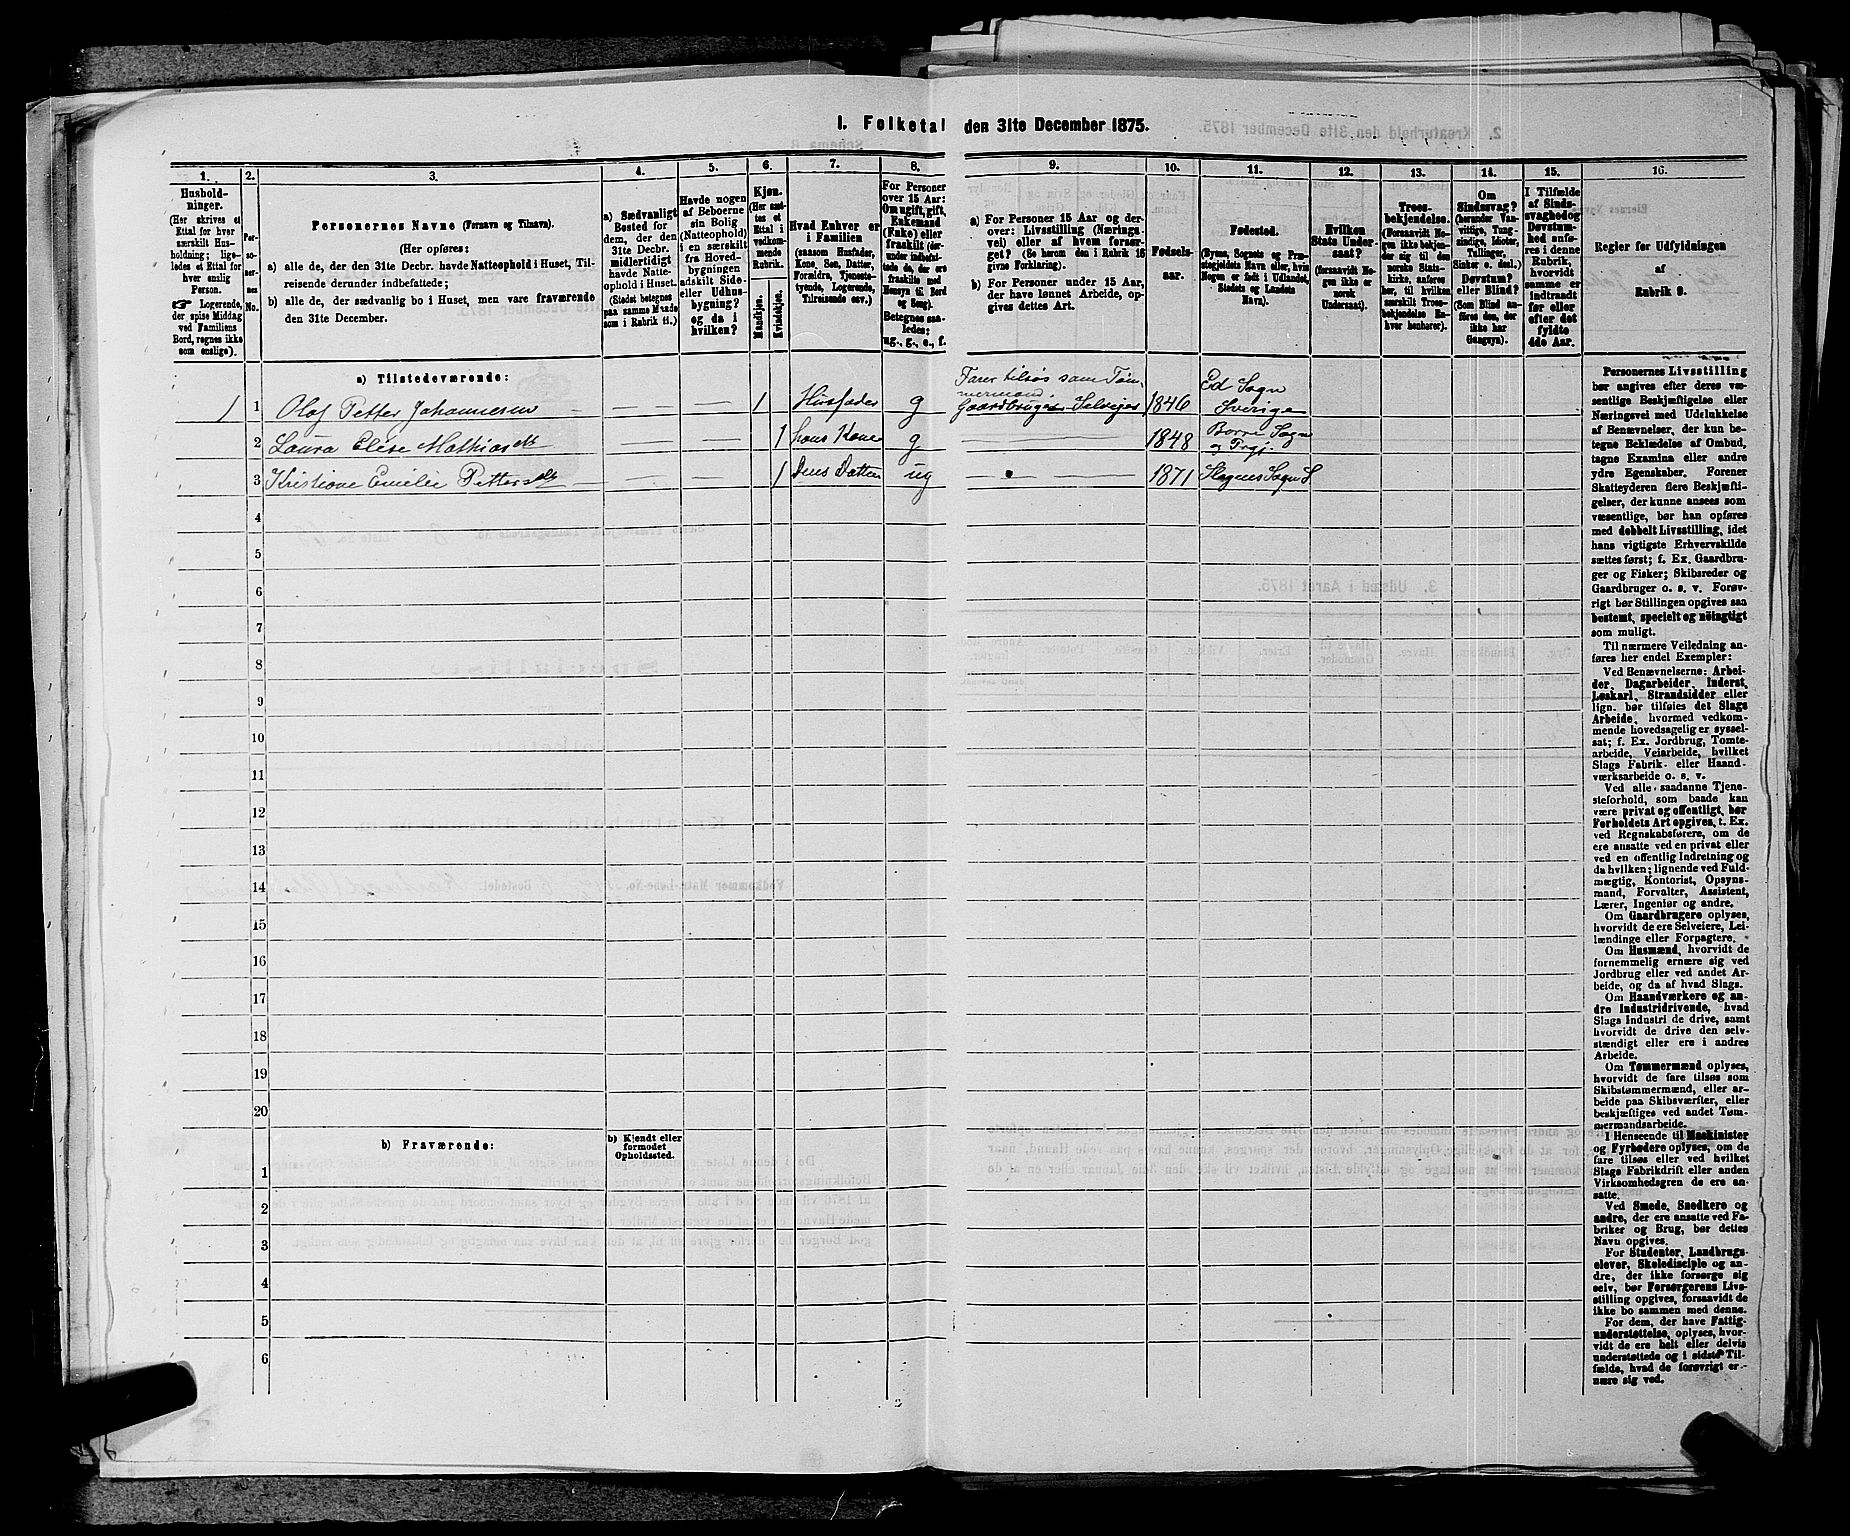 I. Folketal den 31te December 1875.
1.
Husholdninger.
(Her skrives et
Ettal for hver
særskilt Husholdning; ligeledes
et Ettal for
hver enslig
Person.
☞ Logerende,
der spise Middag
ved Familiens
Bord, regnes ikke
som enslige).
2.
Personernes
No.
3.
Personernes Navne (Fornavn og Tilnavn).
(Her opføres:
a) alle de, der den 31te Decbr. havde Natteophold i Huset, Tilreisende
derunder indbefattede;
b) alle de, der sædvanlig bo i Huset, men vare fraværende
den 31te December.
4.
a) Sædvanligt
Bosted for
dem, der den
31te Decbr.
midlertidigt
havde Natteophold
i Huset.
(Stedet betegnes
paa samme Maade
som i Rubrik 11.)
5.
Havde nogen
af Beboerne
sin Bolig
(Natteophold)
i en særskilt
fra Hovedbygningen
adskilt Side-
eller Udhusbygning?
og da i
hvilken?
6.
Kjøn.
(Her sættes
et
Ettal i
vedkommende
Rubrik.
Mandkjøn.
Kvindekjøn.
7.
Hvad Enhver er
i Familien
(saasom Husfader,
Kone, Søn, Datter,
Forældre, Tjenestetyende,
Logerende,
Tilreisende osv.)
8.
For Personer
over 15 Aar:
Om ugift, gift,
Enkemand
(Enke) eller
fraskilt
Betegnes saaledes:
ug., g., e., f.
9.
a) For Personer 15 Aar og derover:
Livsstilling (Næringsvei)
eller af hvem forsørget?
(Se herom den i Rubrik 16
givne Forklaring).
b) For Personer under 15 Aar,
der have lønnet Arbeide, opgives
dettes Art.
10.
Fødselsaar.
11.
Fødested.
(Byens, Sognets og Præstegjeldets
Navn eller, hvis
Nogen er født i Udlandet,
Stedets og Landets
Navn).
12.
Hvilken
Stats Undersaat?
(forsaavidt Nogen
ikke er
norsk
Undersaat).
13.
Troesbekjendelse.
(Forsaavidt Nogen
ikke bekjender
sig til den
norske Statskirke,
anføres
her, til hvilken
særskilt Troesbekjendelse
Enhver
henhører).
14.
Om
Sindssvag?
(herunder Vanvittige,
Tungsindige,
Idioter,
Tullinger,
Sinker o. desl.)
Døvstum?
eller Blind?
(Som Blind anføres
den, der
ikke har
Gangsyn).
15.
I Tilfælde
af Sindssvaghed
og
Døvstumhed
anføres
i denne
Rubrik,
hvorvidt
samme er
indtraadt
før eller
efter det
fyldte
4de Aar.
16.
Regler for Udfyldningen
af
Rubrik 9.
a) Tilstedeværende:
1 1 Olaf Petter Johannesen — — 1 Husfader g Farer tilsøs som Tømmermand, Gaardbruger Selveier 1846 Ed Sogn Sverige
2 Laura Elise Mathiasdt — — 1 hans Kone g — 1848 Borre Sogn og Prgj.
3 Kristiane Emilie Pettersdt — — 1 Deres Datter ug — 1871 Slagens Sogn S
4
5
6
7
8
9
10
11
12
13
14
15
16
17
18
19
20
b) Fraværende:
b) Kjendt eller
formodet
Opholdssted.
1
2
3
4
5
6
Personernes Livsstilling
bør angives efter deres væsentlige
Beskjæftigelse eller
Næringsvei med Udelukkelse
af Benævnelser, der kun betegne
Beklædelse af Ombud,
tagne Examina eller andre
ydre Egenskaber. Forener
Skatteyderen flere Beskjæftigelser,
der kunne ansees som
væsentlige, bør han opføres
med dobbelt Livsstilling, idet
hans vigtigste Erhvervskilde
sættes først; f. Ex. Gaardbruger
og Fisker; Skibsreder og
Gaardbruger o. s. v. Forøvrigt
bør Stillingen opgives saa
bestemt, specielt og nøiagtigt
som muligt.
Til nærmere Veiledning anføres
her endel Exempler:
Ved Benævnelserne: Arbeider,
Dagarbeider, Inderst,
Løskarl, Strandsidder eller
lign. bør tilføies det Slags
Arbeide, hvormed vedkommende
hovedsagelig er sysselsat;
f. Ex. Jordbrug, Tomtearbeide,
Veiarbeide, hvilket
Slags Fabrik- eller Haandværksarbeide
o. s. v.
Ved alle saadanne Tjenesteforhold,
som baade kan
være privat og offentligt, bør
Forholdets Art opgives, t. Ex.
ved Regnskabsførere, om de
ere ansatte ved en privat eller
ved en offentlig Indretning og
da hvilken; lignende ved Fuldmægtig,
Kontorist, Opsynsmand,
Forvalter, Assistent,
Lærer, Ingeniør og andre.
Om Gaardbrugere oplyses,
hvorvidt de ere Selveiere, Leilændinge
eller Forpagtere.
Om Husmænd, hvorvidt de
fornemmelig ernære sig ved
Jordbrug eller ved andet Arbeide,
og da af hvad Slags.
Om Haandværkere og andre
Industridrivende, hvad
Slags Industri de drive, samt
hvorvidt de drive den selvstændigt
eller ere i andres
Arbeide.
Om Tømmermænd oplyses,
hvorvidt de fare tilsøs som
Skibstømmermænd, eller arbeide
paa Skibsværfter, eller
beskjæftiges ved andet Tømmermandsarbeide.
I Henseende til Maskinister
og Fyrbødere oplyses, om de
fare tilsøs eller ved hvilket
Slags Fabrikdrift eller anden
Virksomhedsgren de ere ansatte.
Ved Smede, Snedkere og
andre, der ere ansatte ved Fabriker
og Brug, bør dettes
Navn opgives.
For Studenter, Landbrugselever,
Skoledisciple og andre,
der ikke forsørge sig
selv, bør Forsørgerens Livsstilling
opgives, forsaavidt de
ikke bo sammen med denne.
For dem, der have Fattigunderstøttelse,
oplyses, hvorvidt
de ere helt eller delvis
understøttede og i sidste Tilfælde,
hvad de forøvrigt ernære
sig ved.